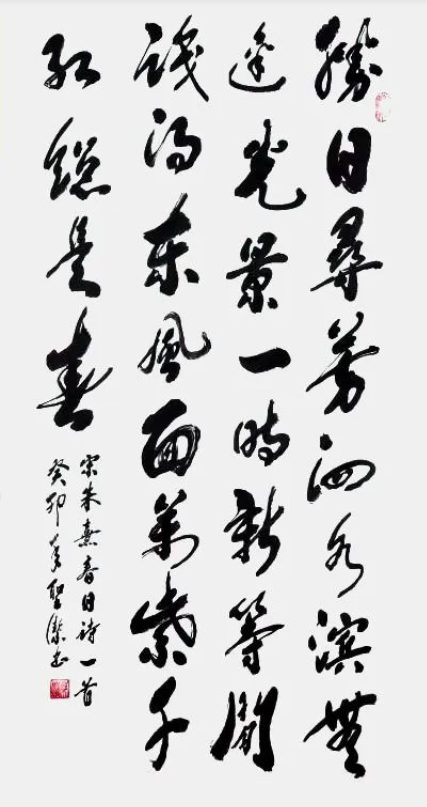 勝日尋芳泗水濱無
邊光景一時新等閒
識得東風面萬紫千
紅總是春
宋朱熹春日詩一首
癸卯年聖書